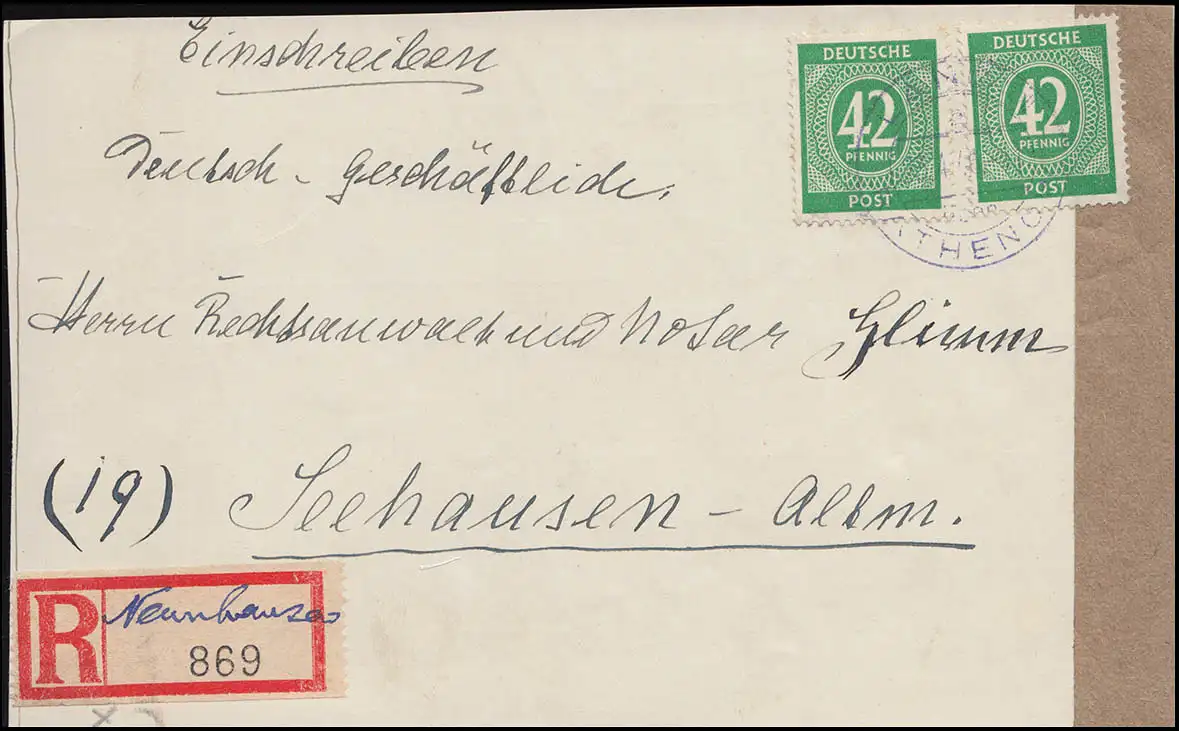 Einschreiben
DEUTSCHE
42
PFENNIG
POST
DEUTSCHE
42
PFENNIG
POST
Deutsch - Geschäftlich.
Herrn Rechtsanwalt und Notar Glimm
(19) Seehausen - Altm.
R Nennhausen
869